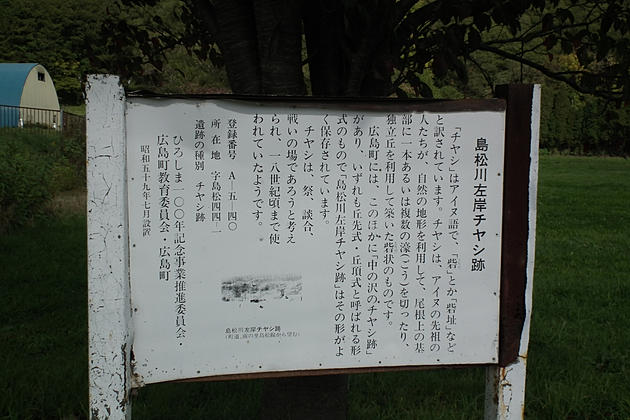 島松川左岸チヤシ跡
「チヤシ」はアイヌ語で、「砦」とか「砦址」など
と訳されています。チヤシは、アイヌの先祖の
人たちが、自然の地形を利用して、尾根上の基
部に一本あるいは複数の濠(ごう)を切ったり、
独立丘を利用して築いた砦状のものです。
広島町には、このほかに「中の沢のチヤシ跡」
があり、いずれも丘先式・丘頂式と呼ばれる形
式のもので「島松川左岸チヤシ跡」はその形がよ
く保存されています。
チヤシは、祭、談合、
戦いの場であろうと考え
られ、一八世紀頃まで使
われていたようです。
登録番号 A―五―四〇
所在地 字島松四四二―一
遺跡の種別 チヤシ跡
ひろしま一〇〇年記念事業推進委員会・
広島町教育委員会・広島町
昭和五十九年七月設置
島松川左岸チヤシ跡